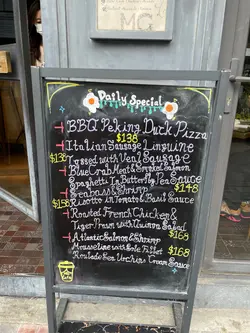 MG
Daily Special
BBQ Peking Duck Pizza
$138
Italian Sausage Linguine
$138
Tossed with Veal Sausage
Blue Crab Meat & Smoked Salmon
Spaghetti in Butterfly Pea Sauce
$148
Seabass & Shrimp
$158
Risotto in Tomato & Basil Sauce
Roasted French Chicken &
Tiger Prawn with Quinoa Salad
$168
Atlantic Salmon & Shrimp
Mousseline with Sole Fillet
$168
Roulade Sea Urchin Cream Sauce